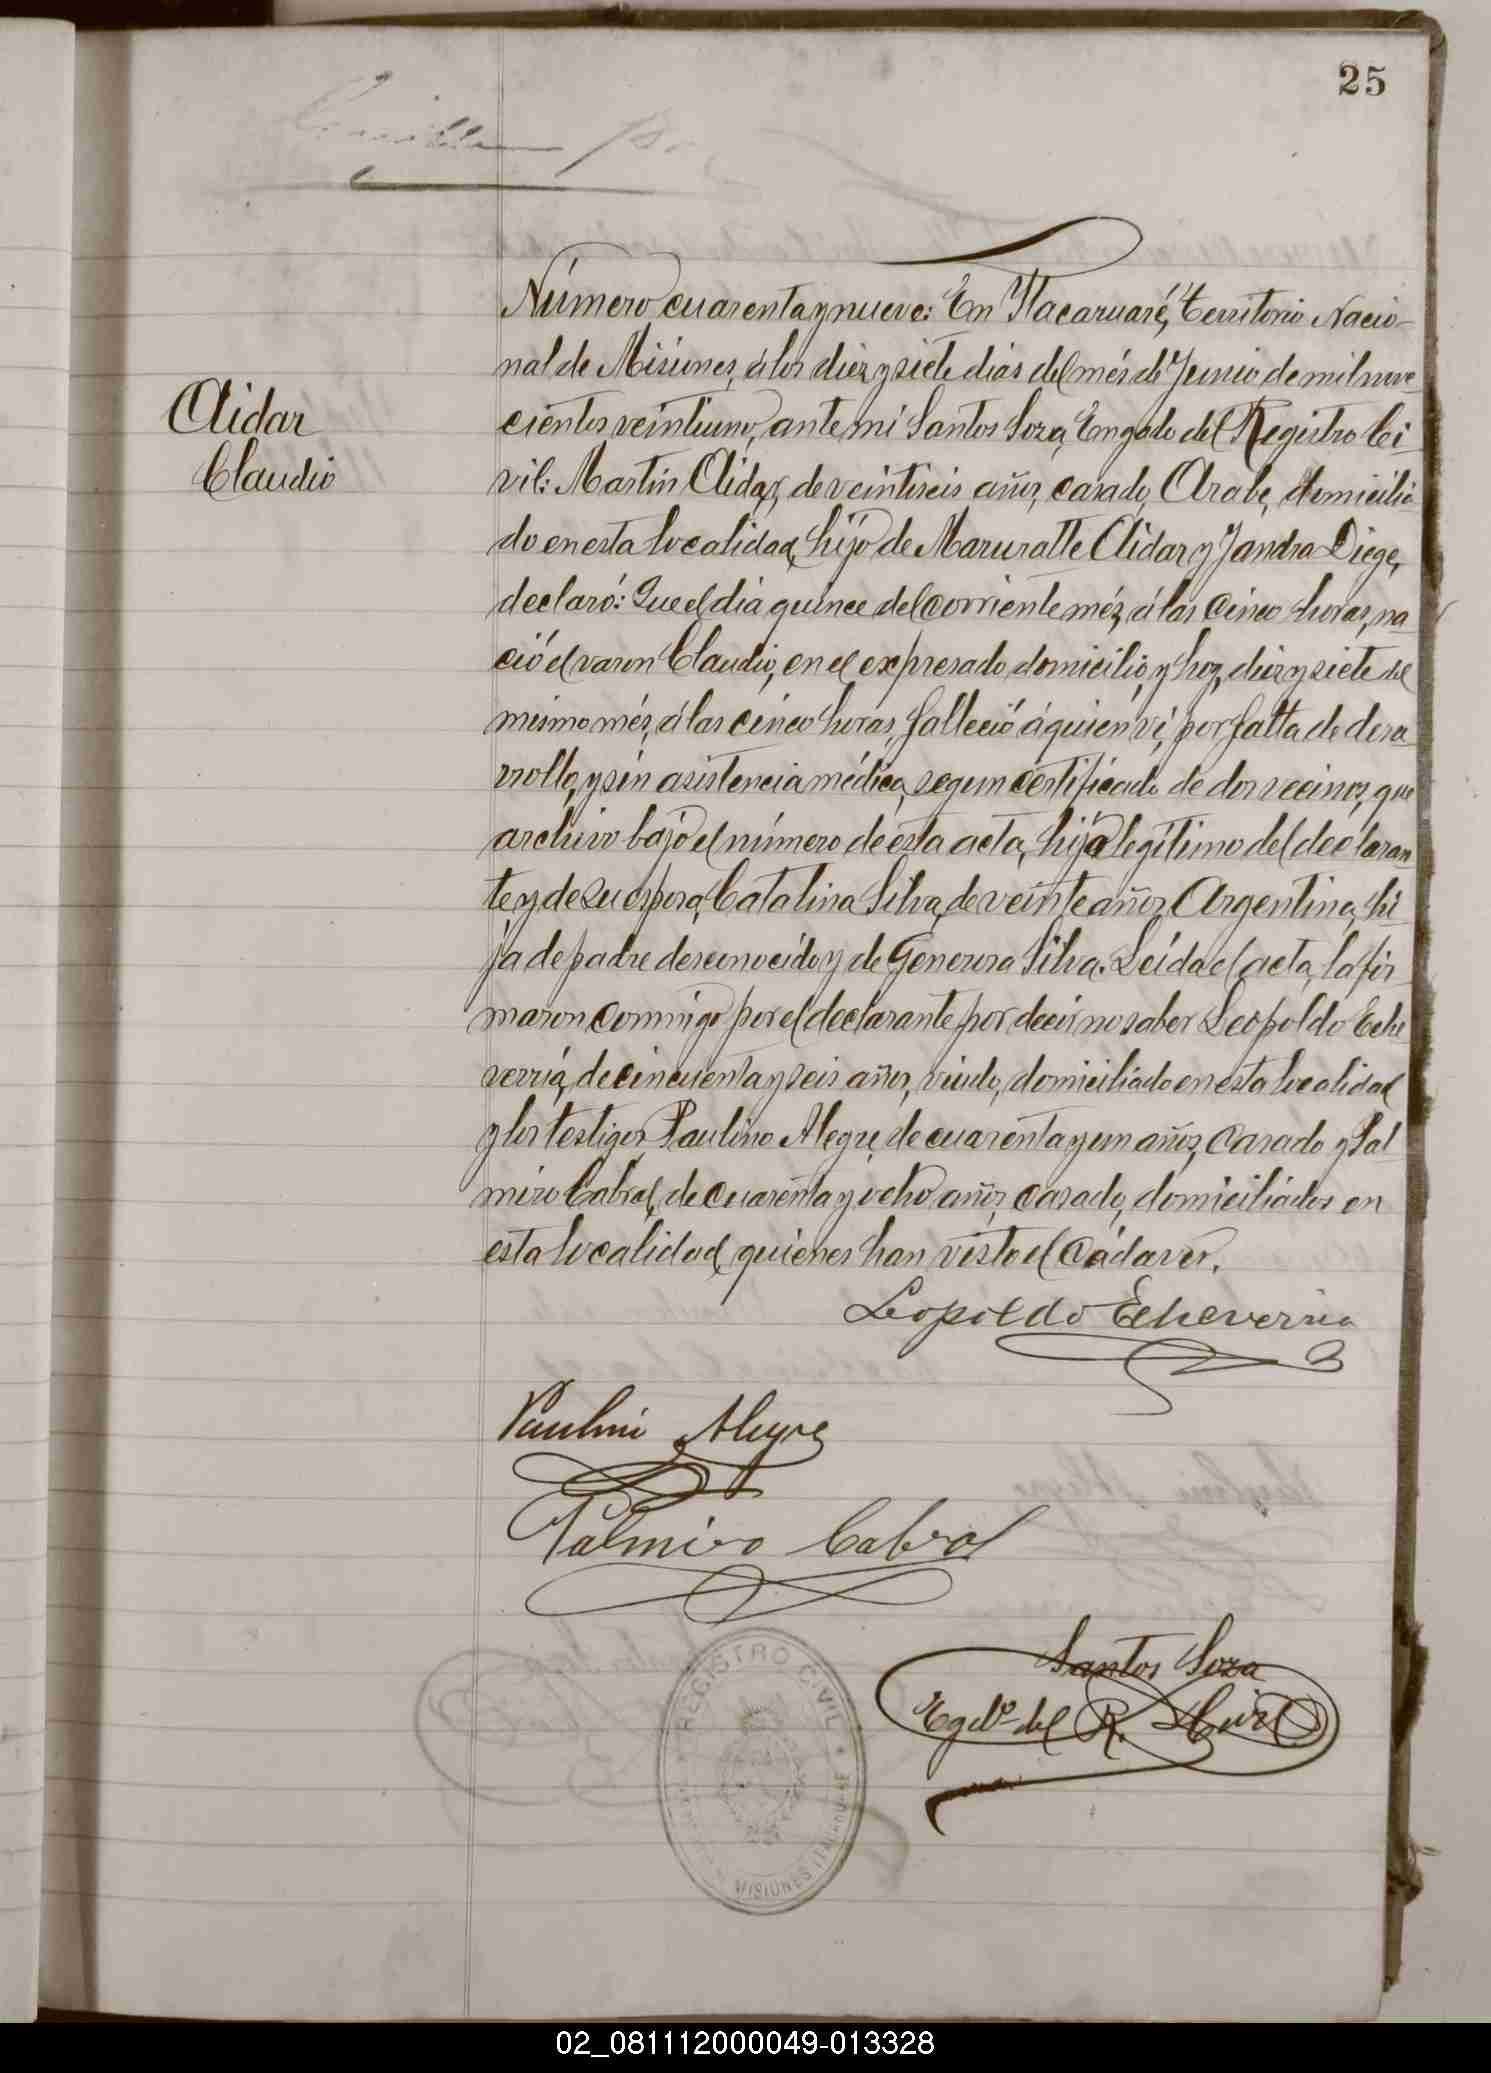 25
Número cuarenta y nueve: En Itacaruaré, Territorio Nacio-
nal de Misiones, á los diez y siete dias del més de Junio de mil nove-
Aidar
cientos veintiuno, ante mi Santos Soza, Engdo del Registro Ci-
Claudio
vil: Martin Aidar, de veintiseis años, casado, Arabe, domicilia-
do en esta localidad, hijo de Maruratte Aidar y Jandra Diege,
declaró: Que el dia quince del corriente més, á las cinco horas, na-
ció el varon Claudio, en el expresado domicilio, y hoy, diez y siete del
mismo més, á las cinco horas, falleció á quien ví, por falta de desa-
rrollo, y sin asistencia médica, segun certificado de dos vecinos, que
archivo bajo el número de esta acta, hijo legítimo del declaran-
te y de su esposa, Catalina Silva, de veinte años, Argentina, hi-
ja de padre desconocido y de Generosa Silva. Leída el acta, la fir-
maron conmigo por el declarante por decir no saber Leopoldo Eche-
verría, de cincuenta y seis años, viudo, domiciliado en esta localidad
y los testigos, Paulino Alegre, de cuarenta y un años, casado y Pal-
miro Cabral, de cuarenta y ocho años, casado, domiciliados en
esta localidad, quienes han visto el cádaver.
Leopoldo Echeverria
Paulino Alegre
Palmiro Cabral
Santos Soza
Egdo del R. Civil
REGISTRO CIVIL
MISIONES
02_081112000049-013328